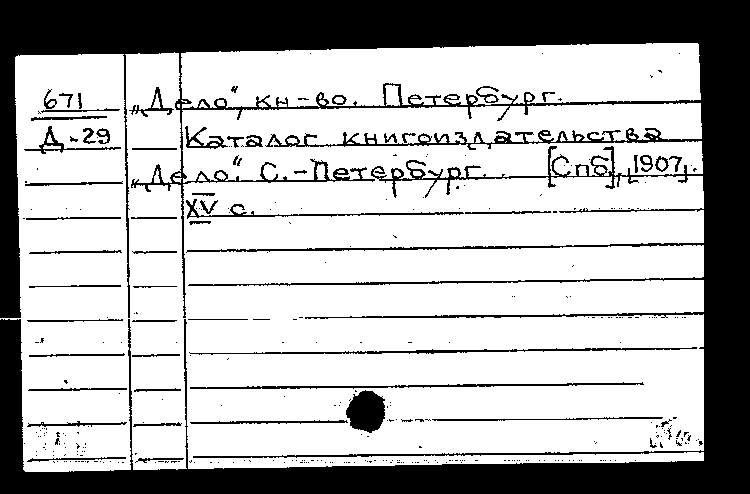 671 „Дело“, кн-во. Петербург.
Д-29 Каталог книгоиздательства
„Дело“. С.-Петербург. [Спб], [1907].
XV с.